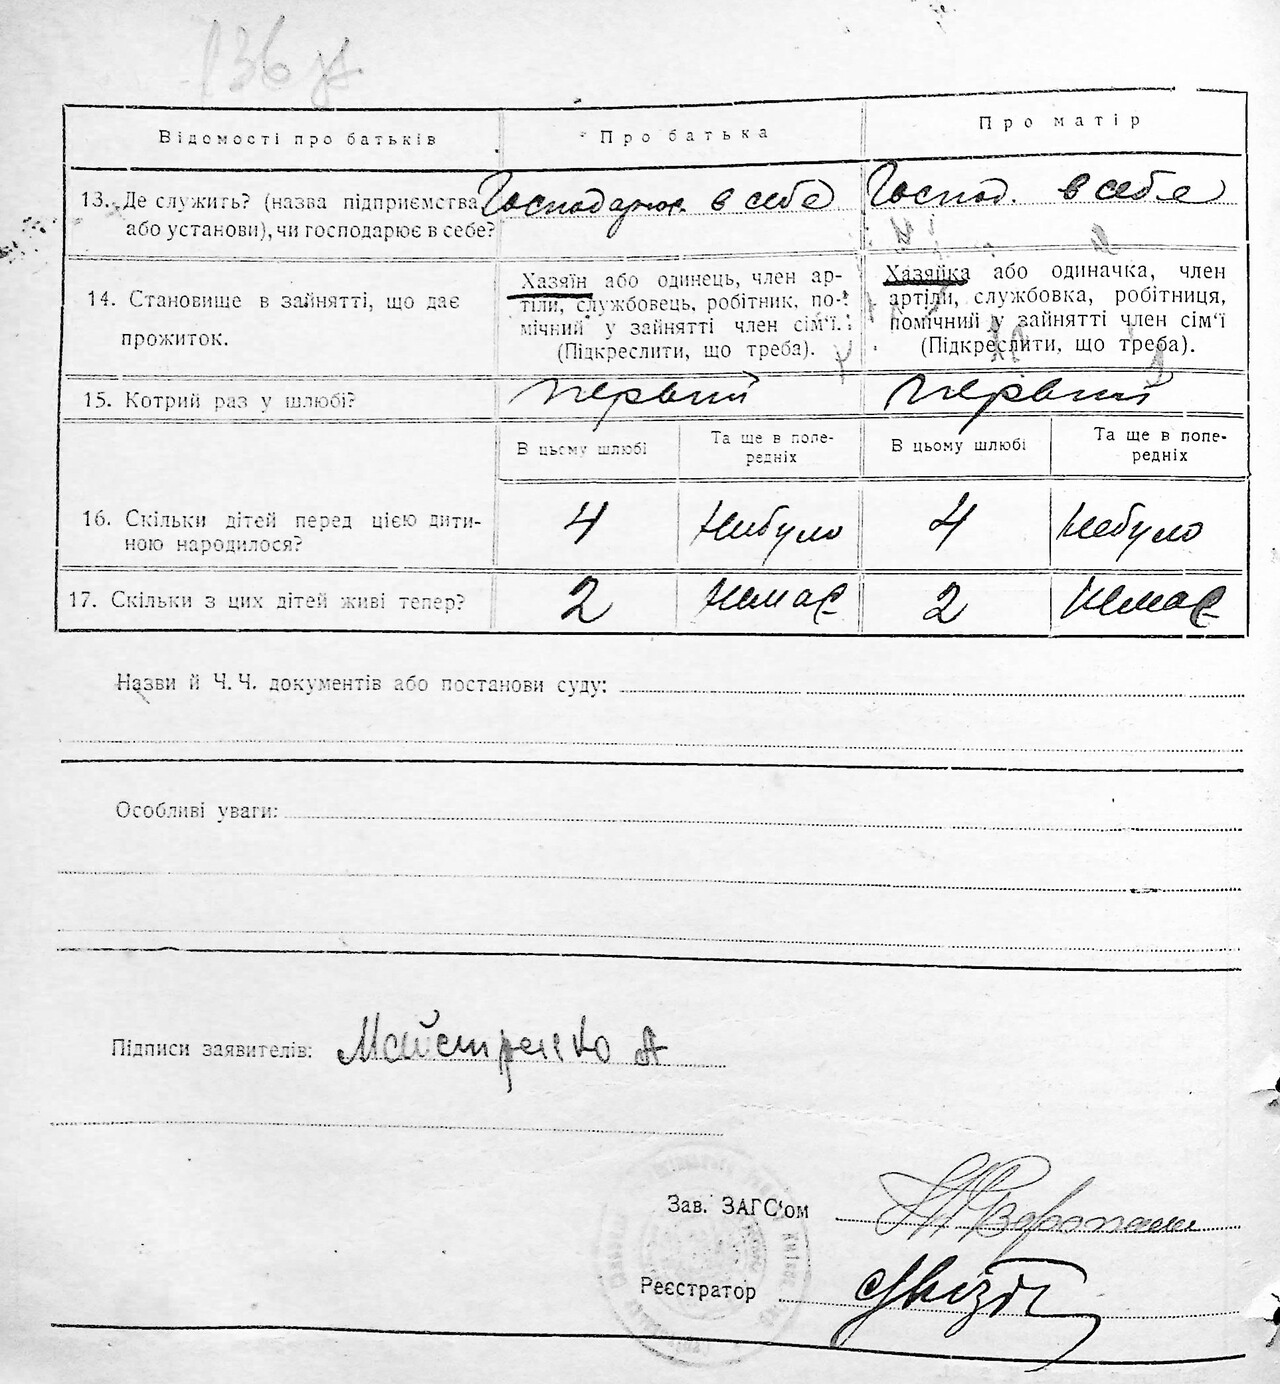 136
Відомості про батьків
Про батька
Про матір
13. Де служить? (назва підприємства
або установи), чи господарює в себе?
Господарює в себе
Господ. в себе
14. Становище в зайнятті, що дає
прожиток.
Хазяїн або одинець, член ар-
тіли, службовець, робітник, по-
мічний у зайнятті член сім'ї.
(Підкреслити, що треба).
Хазяйка або одиначка, член
артіли, службовка, робітниця,
помічний у зайнятті член сім'ї
(Підкреслити, що треба).
15. Котрий раз у шлюбі?
первий
первий
В цьому шлюбі
Та ще в попе-
редніх
В цьому шлюбі
Та ще в попе-
редніх
16. Скільки дітей перед цією дити-
ною народилося?
4
Небуло
4
Небуло
17. Скільки з цих дітей живі тепер?
2
немає
2
немає
Назви й Ч. Ч. документів або постанови суду:
Особливі уваги:
Підписи заявителів: Майстренко А
Зав. ЗАГС'ом
Реєстратор